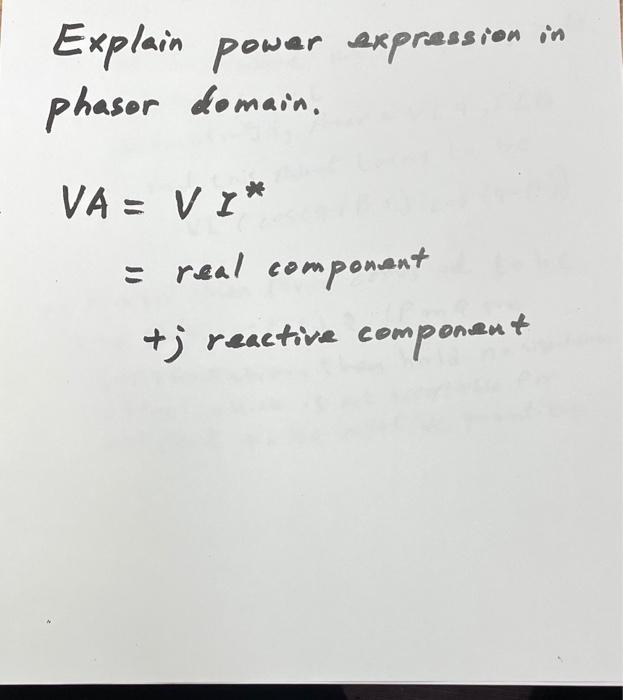 Explain power expression in
phasor domain.
VA = V I*
= real component
+j reactive component